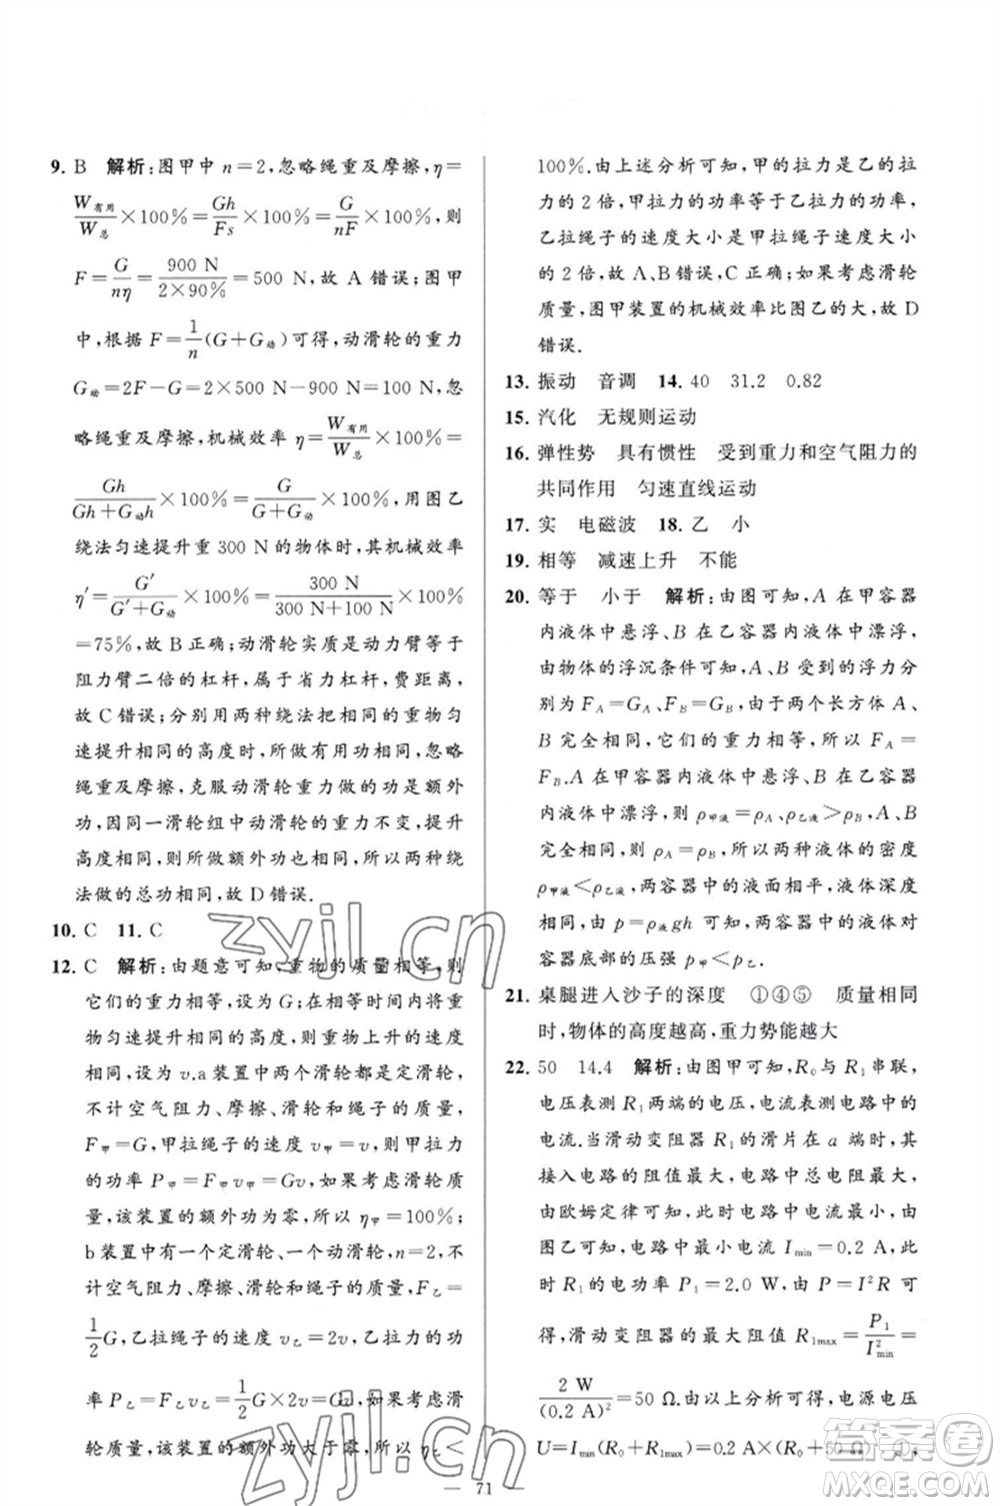 9. B 解析:图甲中 n=2,忽略绳重及摩擦,η=
W有用/W总×100%=Gh/Fs×100%=G/nF×100%,则
F=G/nη=900 N/2×90%=500 N,故 A 错误;图甲
中,根据 F=1/n(G+G动)可得,动滑轮的重力
G动=2F-G=2×500 N-900 N=100 N,忽
略绳重及摩擦,机械效率 η=W有用/W总×100%=
Gh/Gh+G动h×100%=G/G+G动×100%,用图乙
绕法匀速提升重 300 N 的物体时,其机械效率
η′=G′/G′+G动×100%=300 N/300 N+100 N×100%
=75%,故 B 正确;动滑轮实质是动力臂等于
阻力臂二倍的杠杆,属于省力杠杆,费距离,
故 C 错误;分别用两种绕法把相同的重物匀
速提升相同的高度时,所做有用功相同,忽略
绳重及摩擦,克服动滑轮重力做的功是额外
功,因同一滑轮组中动滑轮的重力不变,提升
高度相同,则所做额外功相同,所以两种绕
法做的总功相同,故 D 错误.
10. C 11. C
12. C 解析:由题意可知,重物的质量相等,则
它们的重力相等,设为 G;在相等时间内将重
物提升相同的高度,则重物上升的速度相
同,设为 v.a 装置中有两个定滑轮,n=1,
不计空气阻力、摩擦、滑轮和绳子的质量,
F甲=G,甲拉绳子的速度 v甲=v,则甲拉力的
功率 P甲=F甲v甲=Gv,如果考虑滑轮质
量,该装置的额外功为零,所以 η甲=100%;
b装置中有一个定滑轮、一个动滑轮,n=2,不
计空气阻力、摩擦、滑轮和绳子的质量,F乙=
1/2G,乙拉绳子的速度 v乙=2v,乙拉力的功
率 P乙=F乙v乙=1/2G×2v=Gv,如果考虑滑
轮质量,该装置的额外功大于零,所以 η乙<
100%.由上述分析可知,甲的拉力是乙的拉
力的 2 倍,甲拉力的功率等于乙拉力的功率,
乙拉绳子的速度大小是甲拉绳子速度大小
的 2 倍,故 A、B 错误,C 正确;如果考虑滑轮
质量,图甲装置的机械效率比图乙的大,故 D
错误.
13. 振动 音调 14. 40 31.2 0.82
15. 汽化 无规则运动
16. 弹性势 具有惯性 受到重力和空气阻力的
共同作用 匀速直线运动
17. 实 电磁波 18. 乙 小
19. 相等 减速上升 不能
20. 等于 小于 解析:由图可知,A 在甲容器
内液体中悬浮、B 在乙容器内液体中漂浮,
由物体的浮沉条件可知,A、B 受到的浮力分
别为 FA=GA、FB=GB,由于两个长方体 A、
B 完全相同,它们的重力相等,所以 FA=
FB.A 在甲容器内液体中悬浮、B 在乙容器
内液体中漂浮,则 ρ甲液=ρA、ρ乙液>ρB,A、B
完全相同,则 ρA=ρB,则两种液体的密度
ρ甲液<ρ乙液,两容器中液面相平,液体深度
相同,由 p=ρ液gh 可知,两容器中的液体对
容器底部的压强 p甲<p乙.
21. 桌腿进入沙子的深度 ①④⑤ 质量相同
时,物体的高度越高,重力势能越大
22. 50 14.4 解析:由图甲可知,R0与 R1 串联,
电压表测 R1 两端的电压,电流表测电路中的
电流.当滑动变阻器 R1 的滑片在 a 端时,其
接入电路的阻值最大,电路中总电阻最大,
由欧姆定律可知,此时电路中电流最小,由
图乙可知,电路中最小电流 Imin=0.2 A,此
时 R1 的电功率 P1=2.0 W,由 P=I²R 可
得,滑动变阻器的最大阻值 R1max=P1/I²min=
2 W/(0.2 A)²=50 Ω.由以上分析可得,电源电压
U=Imin(R0+R1max)=0.2 A×(R0+50 Ω)
zyjl.cn
zyjl.cn
答案圈
MXQE.COM
— 71 —